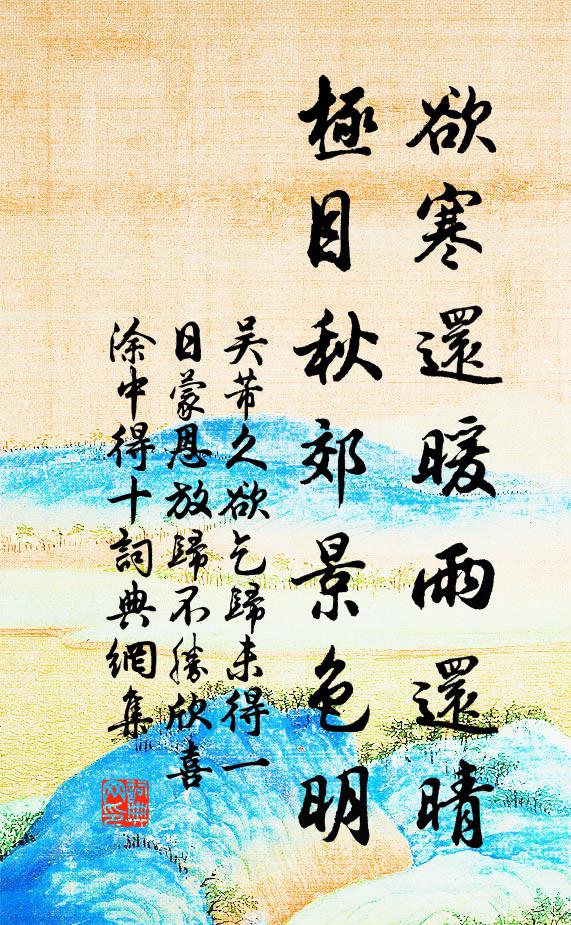 欲寒還暖雨還晴
極目秋郊景色明
吴芾久欲乞歸未得一
日蒙恩放歸不勝欣喜
涂中得十詞典網集